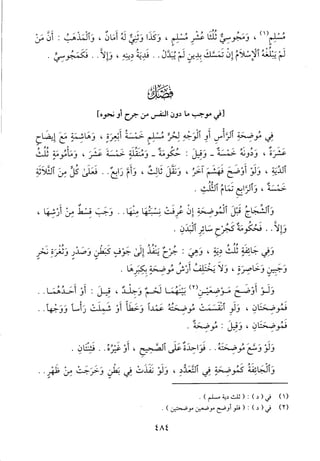 مُسْلِمٍ(١) ، وَمَجُوسِيٍّ ثُلُثَا عُشْرِ مُسْلِمٍ ، وَكَذَا وَثَنِيٌّ لَهُ أَمَانٌ ، وَالْمَذْهَبُ : أَنَّ مَنْ
لَمْ يَبْلُغْهُ الْإِسْلَامُ إِنْ تَمَسَّكَ بِدِينٍ لَمْ يُبَدَّلْ .. فَدِيَةُ دِينِهِ ، وَإِلَّا .. فَكَمَجُوسِيٍّ .
فَصْلٌ
[في موجب ما دون النفس من جرح أو نحوه]
فِي مُوضِحَةِ الرَّأْسِ أَوِ الْوَجْهِ لِحُرٍّ مُسْلِمٍ خَمْسَةُ أَبْعِرَةٍ ، وَهَاشِمَةٍ مَعَ إِيضَاحٍ
عَشَرَةٌ ، وَدُونَهُ خَمْسَةٌ - وَقِيلَ : حُكُومَةٌ - وَمُنَقِّلَةٍ خَمْسَةَ عَشَرَ ، وَمَأْمُومَةٍ ثُلُثُ
الدِّيَةِ ، وَلَوْ أَوْضَحَ فَهَشَمَ آخَرُ ، وَنَقَلَ ثَالِثٌ ، وَأَمَّ رَابِعٌ .. فَعَلَى كُلٍّ مِنَ الثَّلَاثَةِ
خَمْسَةٌ ، وَالرَّابِعِ تَمَامُ الثُّلُثِ .
وَالشِّجَاجُ قَبْلَ الْمُوضِحَةِ إِنْ عُرِفَتْ نِسْبَتُهَا مِنْهَا .. وَجَبَ قِسْطٌ مِنْ أَرْشِهَا ،
وَإِلَّا .. فَحُكُومَةٌ كَجُرْحِ سَائِرِ الْبَدَنِ .
وَفِي جَائِفَةٍ ثُلُثُ دِيَةٍ ، وَهِيَ : جُرْحٌ يَنْفُذُ إِلَى جَوْفٍ كَبَطْنٍ وَصَدْرٍ وَثُغْرَةِ نَحْرٍ
وَجَبِينٍ وَخَاصِرَةٍ ، وَلَا يَخْتَلِفُ أَرْشُ مُوضِحَةٍ بِكِبَرِهَا .
وَلَوْ أَوْضَحَ مَوْضِعَيْنِ(٢) بَيْنَهُمَا لَحْمٌ وَجِلْدٌ ، قِيلَ : أَوْ أَحَدُهُمَا ..
فَمُوضِحَتَانِ ، وَلَوِ انْقَسَمَتْ مُوضِحَتُهُ عَمْداً وَخَطَأً أَوْ شَمِلَتْ رَأْساً وَوَجْهاً ..
فَمُوضِحَتَانِ ، وَقِيلَ : مُوضِحَةٌ .
وَلَوْ وَسَّعَ مُوضِحَتَهُ .. فَوَاحِدَةٌ عَلَى الصَّحِيحِ ، أَوْ غَيْرُهُ .. فَثِنْتَانِ .
وَالْجَائِفَةُ كَمُوضِحَةٍ فِي التَّعَدُّدِ ، وَلَوْ نَفَذَتْ فِي بَطْنٍ وَخَرَجَتْ مِنْ ظَهْرٍ ..
(١) في ( د ) : ( ثلث دية مسلم ) .
(٢) في ( د ) : ( فلو أوضح موضعين موضحتين ) .
٤٨٤